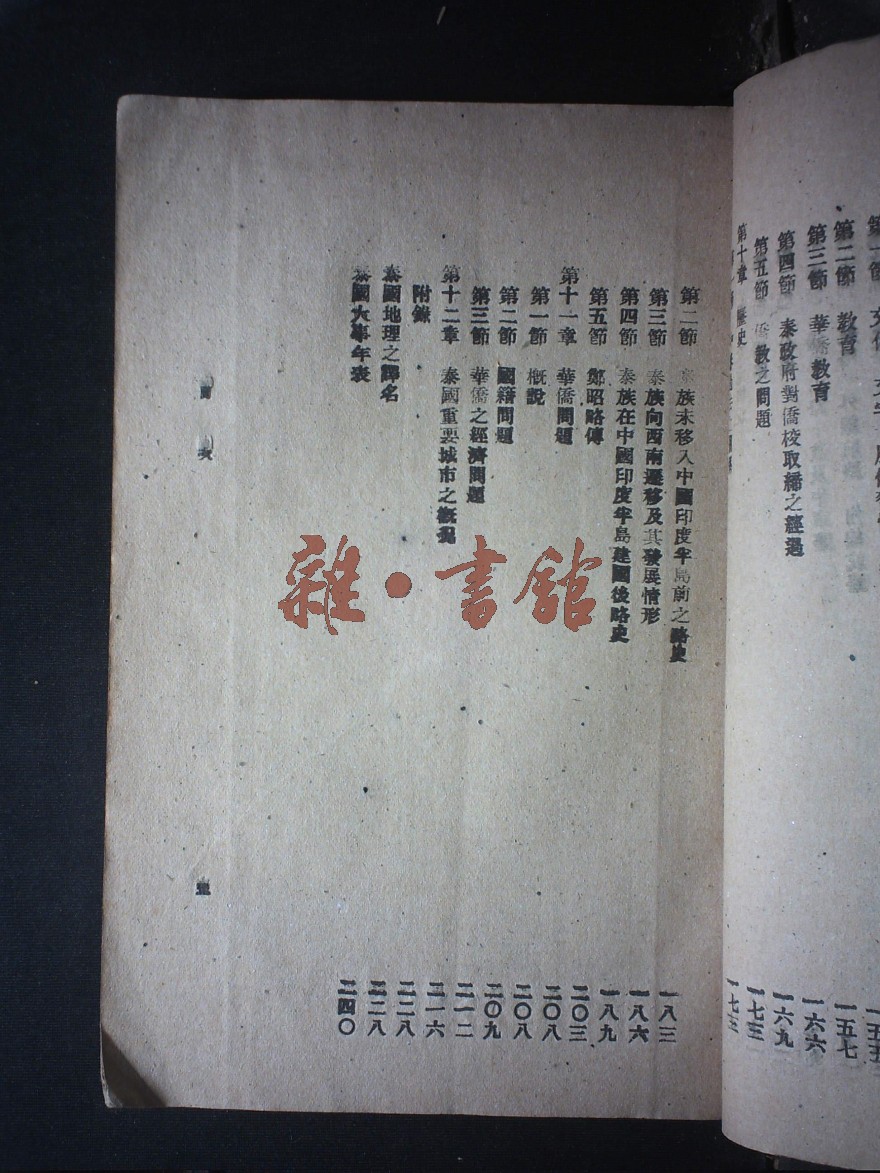 第一節
第二節 教育 一五七
第三節 華僑教育 一六六
第四節 泰政府對僑校取締之經過 一六九
第五節 僑教之問題 一七三
第十章 歷史 一七三
第二節 泰族未移入中國印度半島前之略史 一八三
第三節 泰族向西南遷移及其發展情形 一八六
第四節 泰族在中國印度半島建國後略史 一八九
第五節 鄭昭略傳 二〇三
第十一章 華僑問題 二〇八
第一節 概說 二〇八
第二節 國籍問題 二〇九
第三節 華僑之經濟問題 二一二
第十二章 泰國重要城市之概況 二一六
附錄 二二八
泰國地理之譯名 二二八
泰國大事年表 二四〇
目次 五
雜·書館